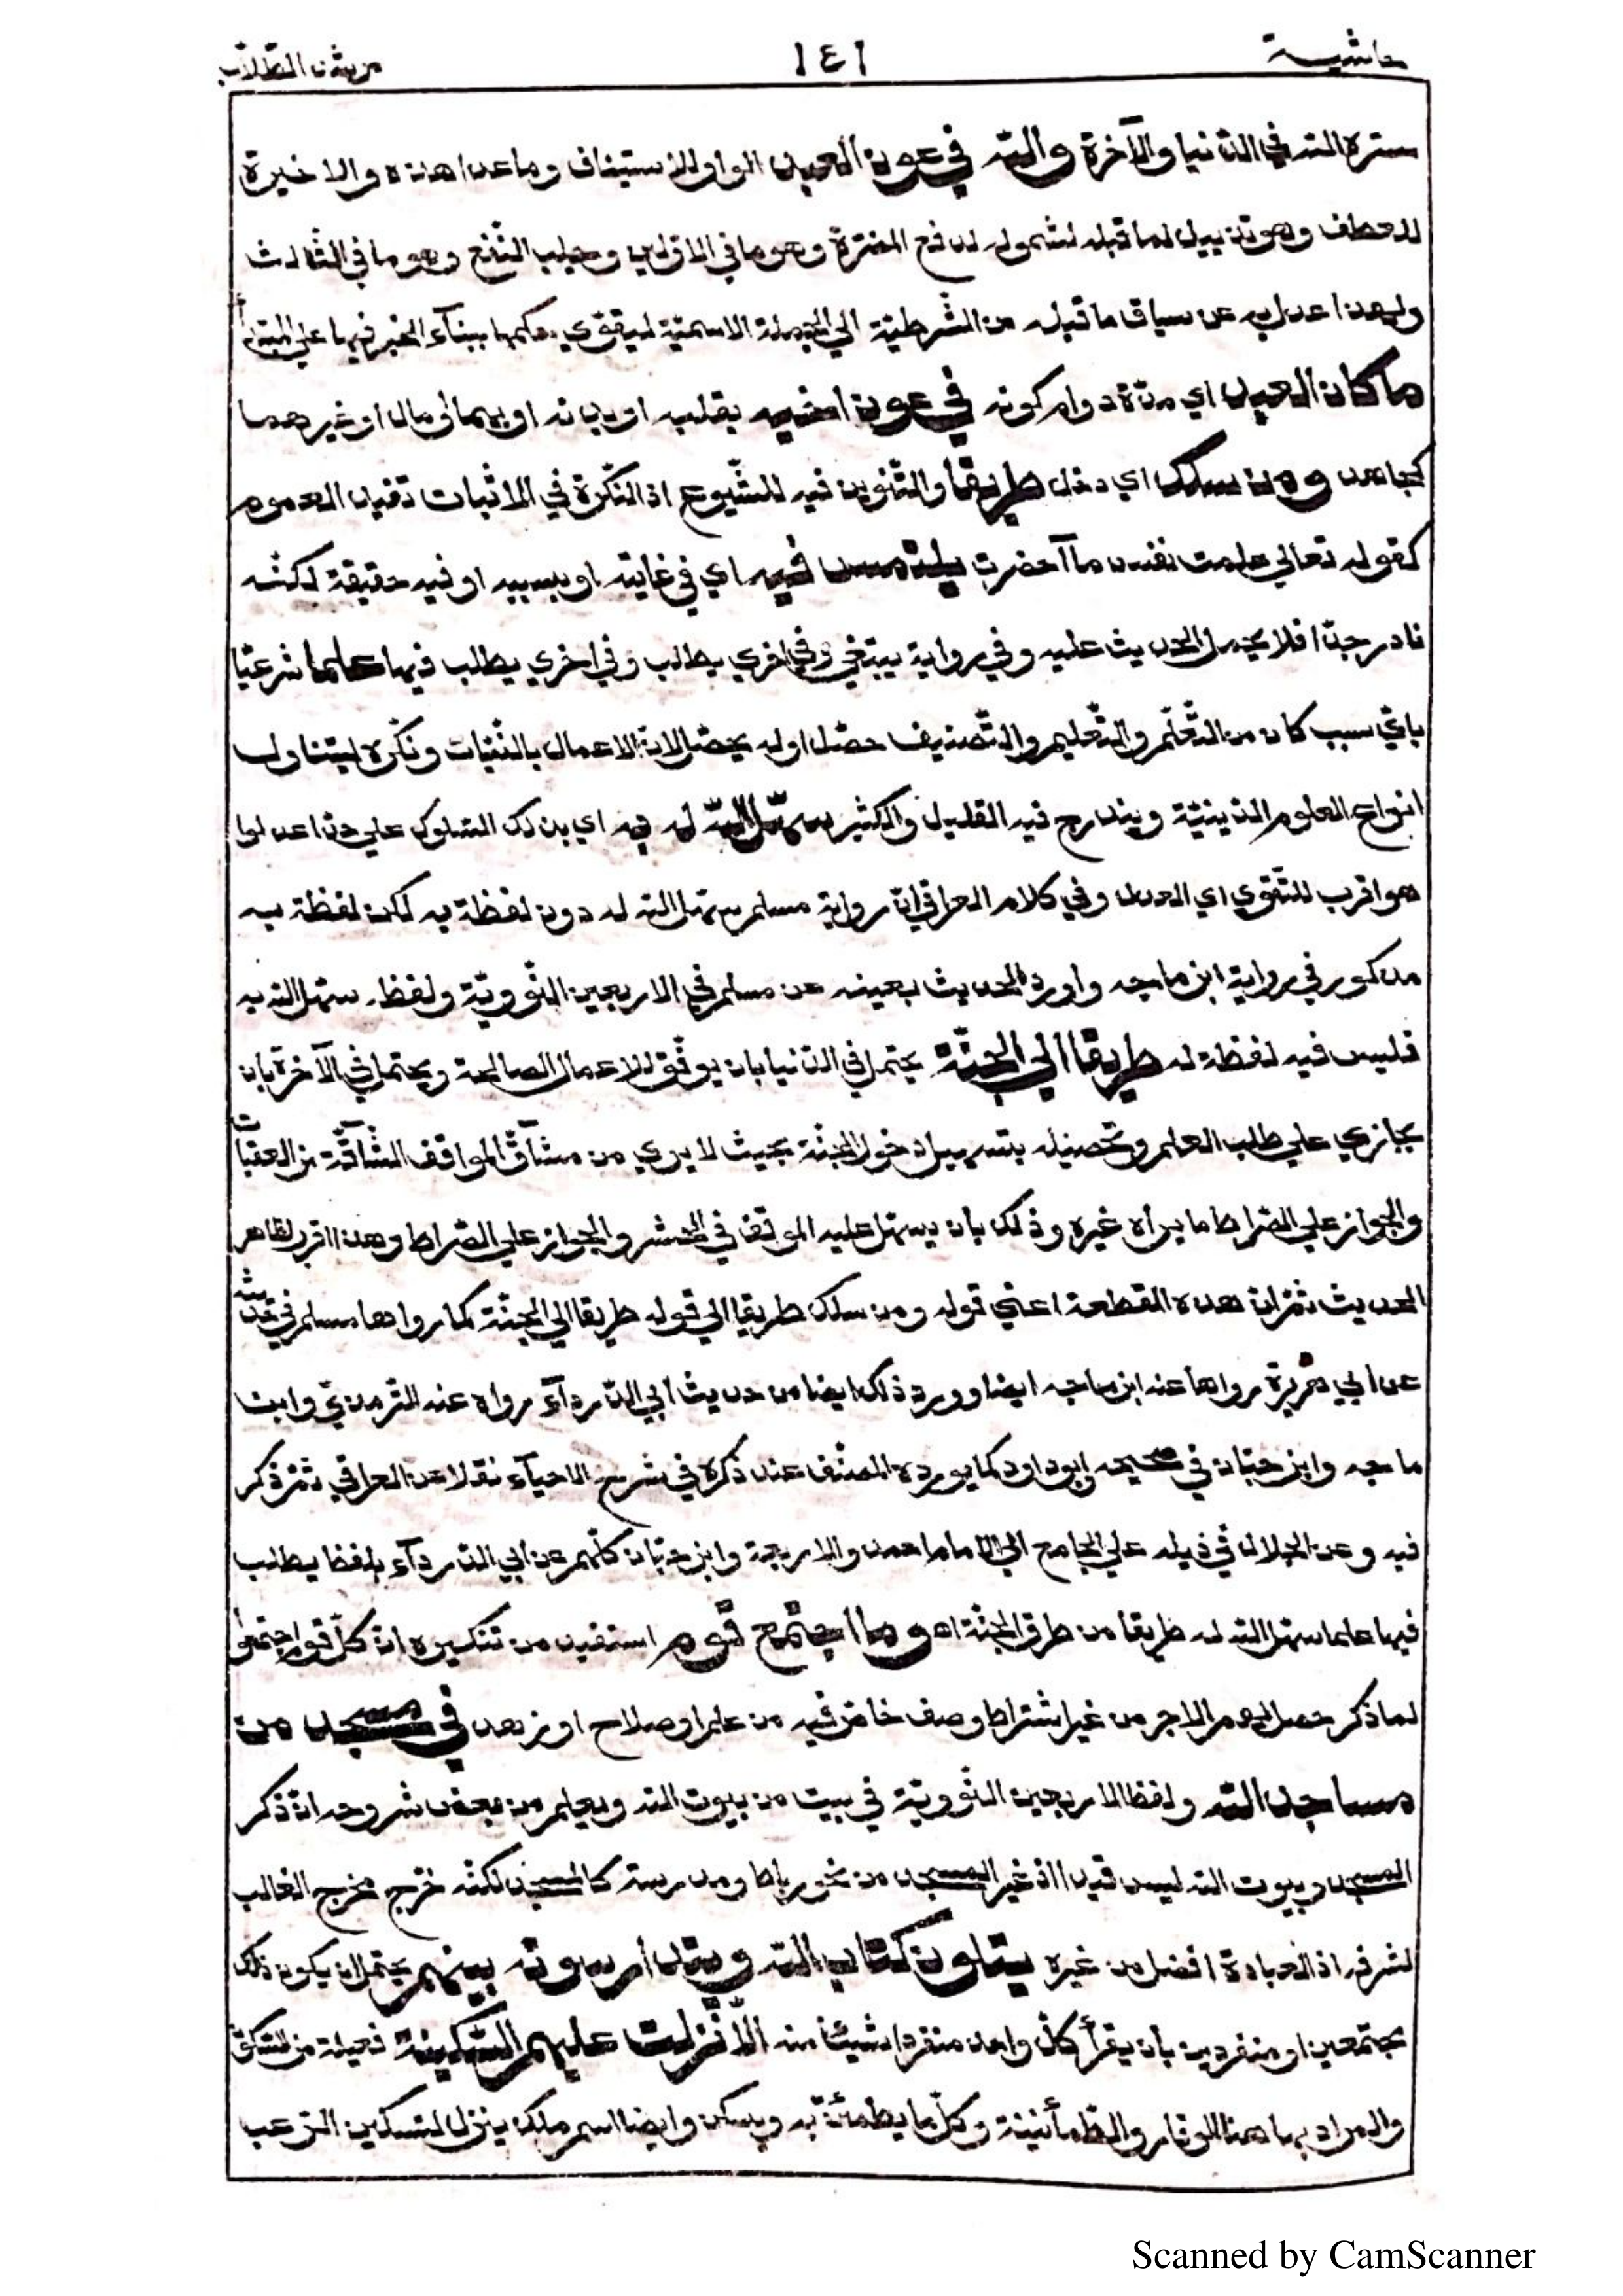 حاشية ١٤١ مرشد الطلاب
ستره الله في الدنيا والآخرة والله في عون العبد الواو للاستيناف وما عدا هذه والاخيرة
للعطف وهو تذييل لما قبله لشموله لدفع المضرة وهو ما في الاولين وجلب النفع وهو ما في الثالث
ولهذا عدل به عن سياق ما قبله من الشرطية الي الجملة الاسمية ليقوي حكمها ببناء الخبر فيها علي المبتدأ
ما كان العبد اي مدة دوام كونه في عون اخيه بقلبه او بدنه او بهما او مال او غيرهما
كجاهه ومن سلك اي دخل طريقا والتنوين فيه للشيوع اذ النكرة في الاثبات تفيد العموم
كقوله تعالي علمت نفس ما آحضرت يلتمس فيه اي في غايته او بسببه او فيه حقيقة لكنه
نادر جدّا فلا يحمل الحديث عليه وفي رواية يبتغي وفي اخري يطلب وفي اخري يطلب فيها علما شرعيّا
بايّ سبب كان من التّعلّم والتّعليم والتّصنيف حصّل او لم يحصّل لان الاعمال بالنّيات ونكّره ليتناول
انواع العلوم الدّينيّة ويندرج فيه القليل والكثير سهّل الله له به اي بذلك السلوك علي حدّ اعدلوا
هو اقرب للتّقوي اي العدل وفي كلام العراقي انّ رواية مسلم سهّل الله له دون لفظة به لكن لفظة به
مذكور في رواية ابن ماجه واورد الحديث بعينه عن مسلم في الاربعين النّوويّة ولفظه سهّل الله به
فليس فيه لفظة له طريقا الي الجنّة يحتمل في الدّنيا بان يوفّق للاعمال الصالحة ويحتمل في الآخرة بان
يجازي علي طلب العلم وتحصيله بتسهيل دخول الجنّة بحيث لا يري من مشآقّ المواقف الشّاقّة من العقبات
والجواز علي الصّراط ما يراه غيره وذلك بان يسهّل عليه الموقف في الحشر والجواز علي الصّراط وهذا اقرب لظاهر
الحديث ثمّ انّ هذه القطعة اعني قوله ومن سلك طريقا الي قوله طريقا الي الجنّة كما رواها مسلم في حديثه
عن ابي هريرة رواها عنه ابن ماجه ايضا وورد ذلك ايضا من حديث ابي الدّردآء رواه عنه الترمذيّ وابن
ماجه وابن حبّان في صحيحه وابو داود كما يورده المصنّف عند ذكره في شرح الاحيآء نقلا عن العراقي ثمّ ذكر
فيه وعن الجلال في ذيله علي الجامع الي الامام احمد والاربعة وابن حبّان كلّهم عن ابي الدّردآء بلفظ يطلب
فيها علما سهّل الله له طريقا من طرق الجنّة اه وما اجتمع قوم استفيد من تنكيره انّ كلّ قوم اجتمعوا
لما ذكر حصل لهم الاجر من غير اشتراط وصف خاصّ فيه من علم او صلاح او زهد في مسجد من
مساجد الله ولفظ الاربعين النّوويّة في بيت من بيوت الله ويعلم من بعض شروحه انّ ذكر
المسجد وبيوت الله ليس قيدا اذ غير المسجد من نحو رباط ومدرسة كالمسجد لكنّه خرج مخرج الغالب
لشرفه اذ العبادة افضل من غيره يتلون كتاب الله ويتدارسونه بينهم يحتمل ان يكون ذلك
مجتمعين او منفردين بان يقرأ كلّ واحد منفردا شيئا منه الّا نزلت عليهم السّكينة فعيلة من السّكون
والمراد بها هنا الوقار والطّمأنينة وكلّ ما يطمئنّ به ويسكن وايضا اسم ملك ينزل لتسكين الرّعب
Scanned by CamScanner